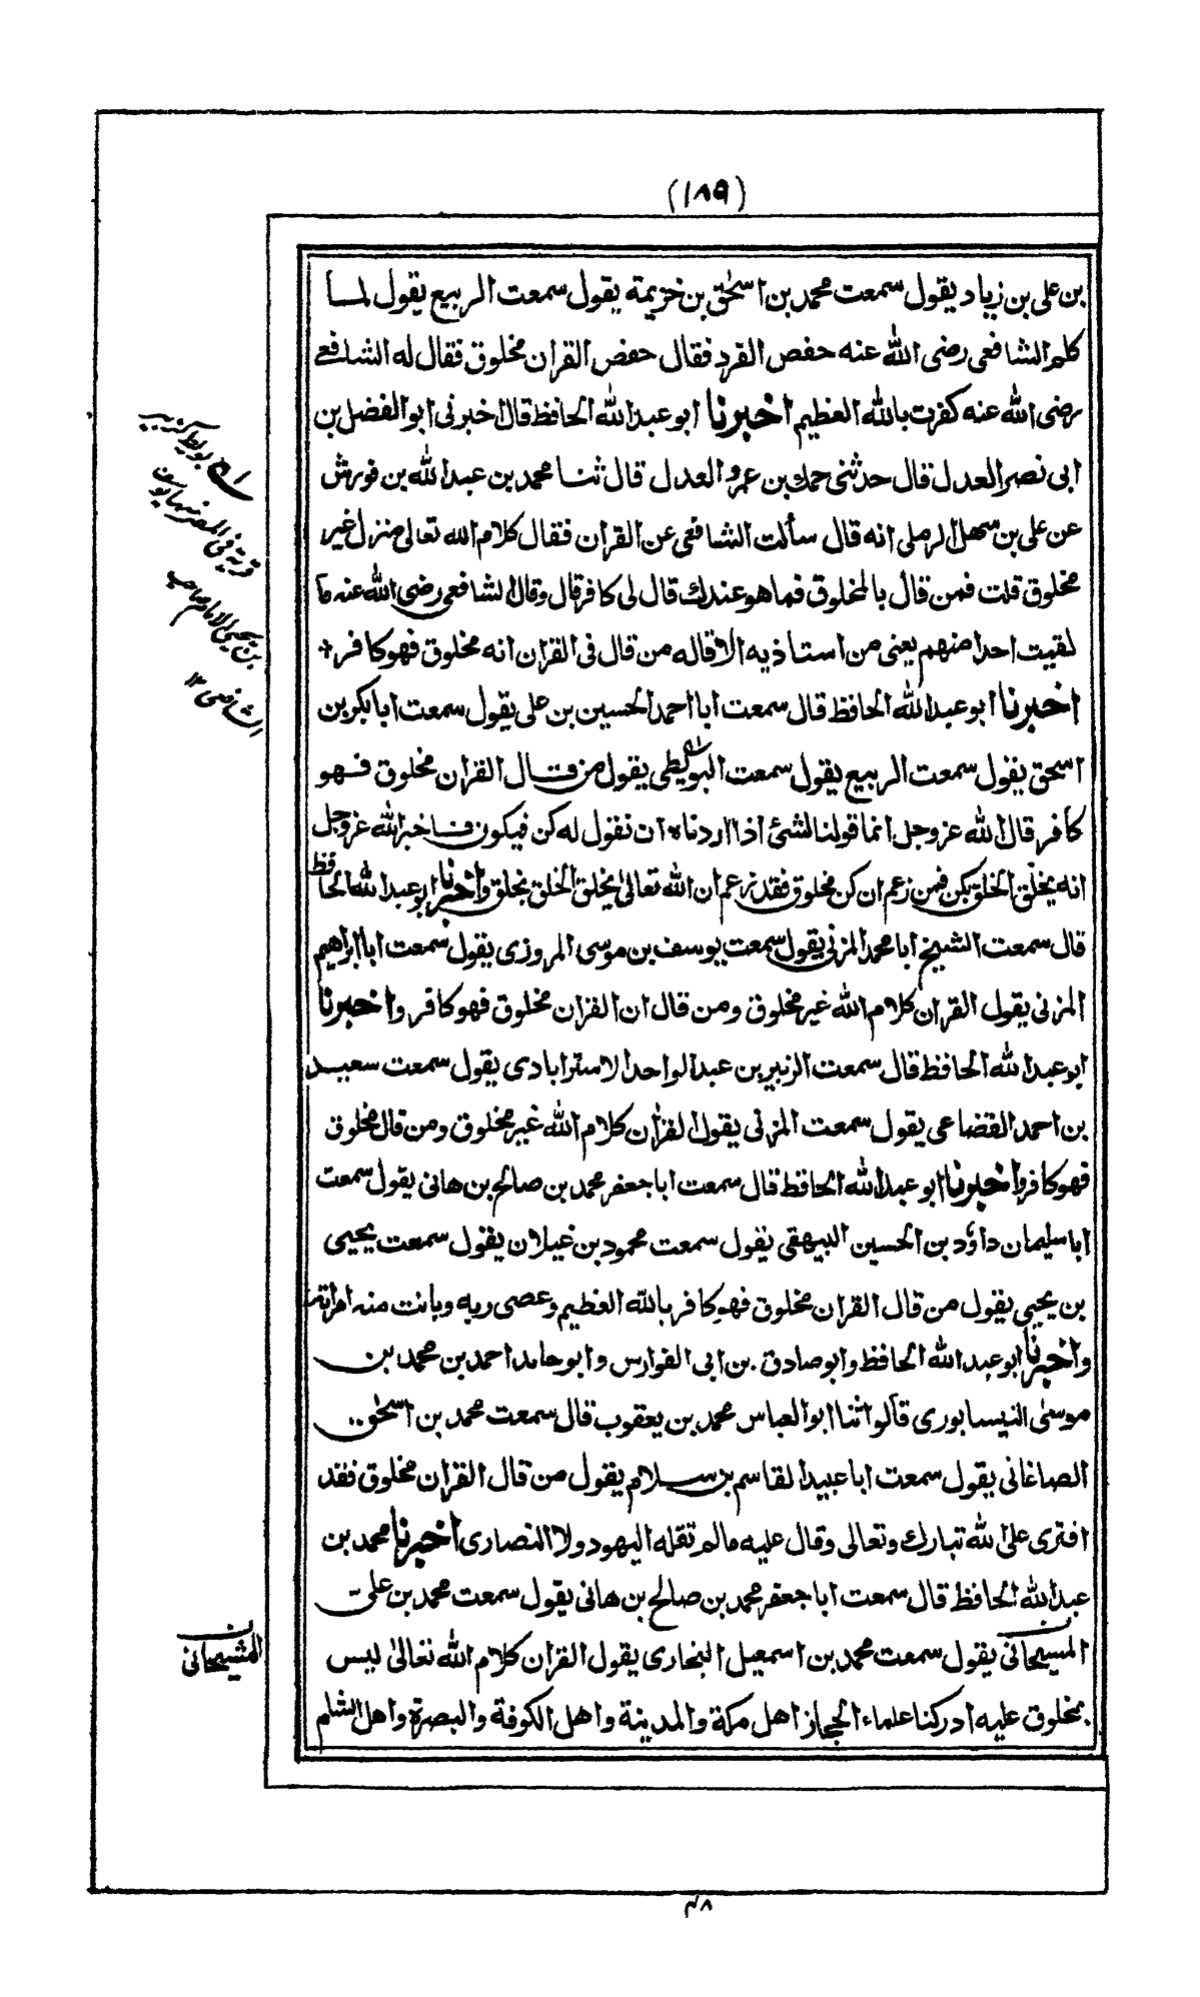 (١٨٩)
بن علی بن زیاد یقول سمعت محمد بن اسحٰق بن خزیمة یقول سمعت الربیع یقول لمـا
کلم الشافعی رضی الله عنه حفص الفرد فقال حفص القران مخلوق فقال له الشافعے
رضی الله عنه کفرت بالله العظیم اخبرنا ابو عبد الله الحافظ قال اخبرنی ابو الفضل بن
ابی نصر العدل قال حدثنی حمك بن عمرو العدل قال ثنـا محمد بن عبد الله بن فورش
عن علی بن سهل الرملی انه قال سألت الشافعی عن القران فقال کلام الله تعالی منزل غیر
مخلوق قلت فمن قال بالمخلوق فما هو عندك قال لی کافر قال وقال الشافعی رضی الله عنه ما
لقیت احدا منهم یعنی من استاذیه الا قاله من قال فی القران انه مخلوق فهو کافر +
اخبرنا ابو عبد الله الحافظ قال سمعت ابا احمد الحسین بن علی یقول سمعت ابا بکر بن
اسحٰق یقول سمعت الربیع یقول سمعت البویطی یقول من قـال القران مخلوق فـهو
کافر قال الله عز وجل انما قولنا لشئ اذا اردناه ان نقول له کن فیکون فـاخبر الله عز وجل
انه یخلق الخلق بکن فمن زعم ان کن مخلوق فقد زعم ان الله تعالیٰ یخلق الخلق بخلق واخبرنا ابو عبد الله الحافظ
قال سمعت الشیخ ابا محمد المزنی یقول سمعت یوسف بن موسی المروزی یقول سمعت ابا ابراهیم
المزنی یقول القران کلام الله غیر مخلوق ومن قال ان القران مخلوق فهو کافر واخبرنا
ابو عبد الله الحافظ قال سمعت الزبیر بن عبد الواحد الاسترابادی یقول سمعت سعیـد
بن احمد القضاعی یقول سمعت المزنی یقول القرأن کلام الله غیر مخلوق ومن قال مخلوق
فهو کافر واخبرنا ابو عبد الله الحافظ قال سمعت ابا جعفر محمد بن صالح بن هانی یقول سمعت
ابا سلیمان داؤد بن الحسین البیهقی یقول سمعت محمود بن غیلان یقول سمعت یحیی
بن یحیی یقول من قال القران مخلوق فهو کافر بالله العظیم وعصی ربه وبانت منه امرأته
واخبرنا ابو عبد الله الحافظ وابو صادق بن ابی الفوارس وابو حامد احمد بن محمد بن
موسیٰ النیسابوری قالوا ثنا ابو العباس محمد بن یعقوب قال سمعت محمد بن اسحٰق
الصاغانی یقول سمعت ابا عبید القاسم بن سـلام یقول من قال القران مخلوق فقد
افتری علی الله تبارك وتعالی وقال علیه مالم تقله الیهود ولا النصاری اخبرنا محمد بن
عبد الله الحافظ قال سمعت ابا جعفر محمد بن صالح بن هانی یقول سمعت محمد بن علی
المسیحانی یقول سمعت محمد بن اسمعیل البخاری یقول القران کلام الله تعالیٰ لیس
بمخلوق علیه ادرکنا علماء الحجاز اهل مکة والمدینة واهل الکوفة والبصرة واهل الشام
بویط کزبیر
قریة فی المصر منها یوسف
بن یحیی الامام صاحب
الشافعی ١٢
ن
المشیحانی
٤٨